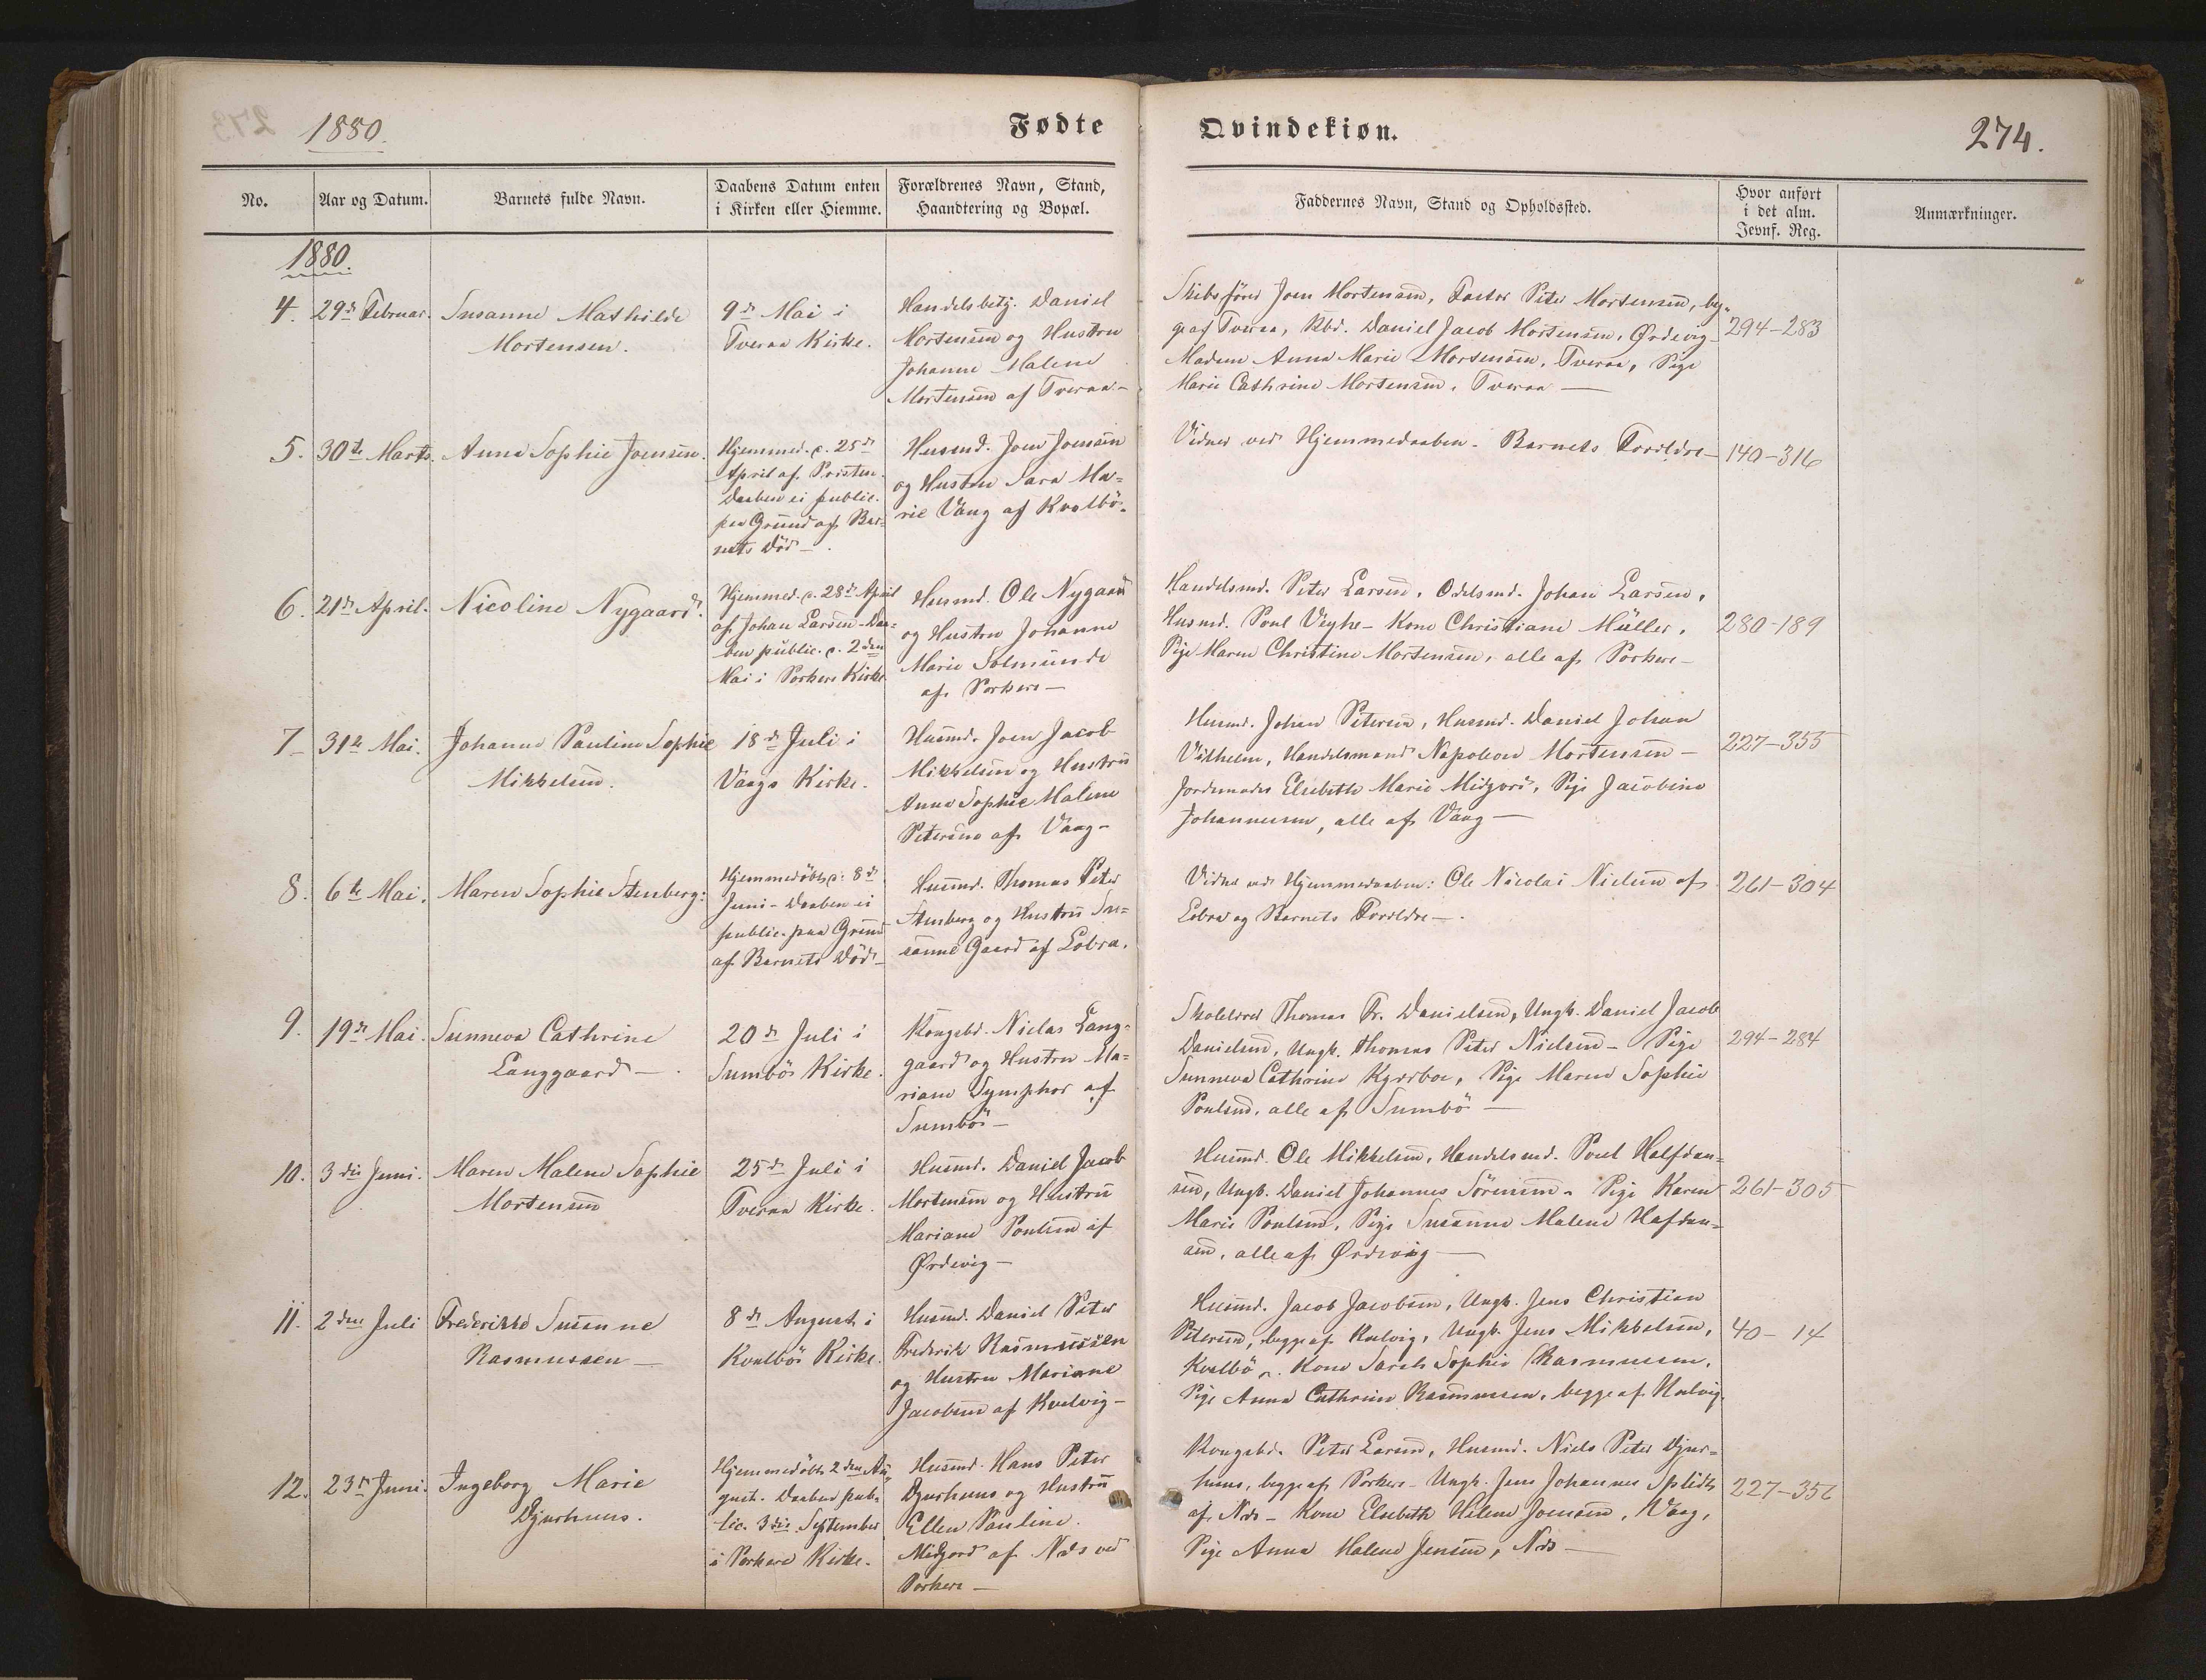 1880.
Fødte
Qvindekiøn.
274.
No.
Aar og Datum.
Barnets fulde Navn.
Daabens Datum enten
i Kirken eller Hiemme.
Forældrenes Navn, Stand,
Haandtering og Bopæl.
Faddernes Navn, Stand og Opholdssted.
Hvor anført
i det alm.
Jevnf. Reg.
Anmærkninger.
1880.
4.
29de Februar.
Susanne Mathilde
Mortensen.
9de Mai i
Tveraa Kirke.
Handelsbetj. Daniel
Mortensen og Hustru
Johanne Malene
Mortensen af Tveraa-
Skibsfører Joen Mortensen, Factor Peter Mortensen, beg-
ge af Tveraa, Kbd. Daniel Jacob Mortensen, Ørdevig-
Madam Anna Marie Mortensen, Tveraa, Pige
Marie Cathrine Mortensen, Tveraa —
294-283
5.
30te Marts.
Anna Sophie Joensen.
Hjemmed. c. 25de
April af Præsten.
Daaben ei public.
paa Grund af Bar-
nets Død —.
Husmd. Joen Joensen
og Hustru Sara Ma-
rie Vang af Kvalbö.
Vidner ved Hjemmedaaben - Barnets Forældre—
140-316
6.
21de April.
Nicoline Nygaard.
Hjemmed. c. 28de April
af Johan Larsen - Daa-
ben public. c. 2den
Mai i Porkere Kirke
Husmd. Ole Nygaard
og Hustru Johanne
Marie Solmunde
af Porkere —
Handelsmd. Peter Larsen, Odelsmd. Johan Larsen,
Husmd. Poul Veyhe - Kone Christiane Müller,
Pige Maren Christine Mortensen, alle af Porkere-
280-189
7
31te Mai.
Johanne Pauline Sophie
Mikkelsen.
18de Juli i
Vaags Kirke.
Husmd. Joen Jacob
Mikkelsen og Hustru
Anna Sophie Malene
Petersen af Vaag-
Husmd. Johan Petersen, Husmd. Daniel Johan
Vilhelm, Handelsmand Napoleon Mortensen -
Jordemoder Elsebeth Marie Midjord, Pige Jacobine
Johannesen, alle af Vaag —
227-355
8.
6te Mai.
Maren Sophie Stenberg:
Hjemmedöbt c. 8de
Juni - Daaben ei
public. paa Grund
af Barnets Död-
Husmd. Thomas Peter
Stenberg og Hustru Su-
sanne Gaard af Lobra.
Vidner ved Hjemmedaaben: Ole Nicolai Nielsen af
Lobra og Barnets Forældre—.
261-304
9.
19de Mai.
Sunneva Cathrine
Langgaard —.
20de Juli i
Sumbö Kirke.
Kongsbd. Niclas Lang-
gaard og Hustru Ma-
riane Symphor af
Sumbö-
Skolelærer Thomas Fr. Danielsen, Ungk. Daniel Jacob
Danielsen, Ungk. Thomas Peter Nielsen - Pige
Sunneva Cathrine Kjærboe, Pige Maren Sophie
Poulsen, alle af Sumbö —
294-284
10.
3die Juni.
Maren Malene Sophie
Mortensen
25de Juli i
Tveraa Kirke.
Husmd. Daniel Jacob
Mortensen og Hustru
Mariane Poulsen af
Ørdevig-
Husmd. Ole Mikkelsen, Handelsmd. Poul Halfdan-
sen, Ungk. Daniel Johannes Sörensen - Pige Karen
Marie Poulsen, Pige Susanne Malene Hafdan-
sen, alle af Ørdevig —
261-305
11.
2den Juli
Frederikke Susanne
Rasmussen —
8de August i
Kvalbö Kirke.
Husmd. Daniel Peter
Frederik Rasmussen
og Hustru Mariane
Jacobsen af Kvalvig-
Husmd. Jacob Jacobsen, Ungk. Jens Christian
Petersen, begge af Hvalvig, Ungk. Jens Mikkelsen,
Kvalbö. Kone Sarah Sophie Rasmussen,
Pige Anna Cathrine Rasmussen, begge af Hvalvig.
40- 14
12.
23de Juni.
Ingeborg Marie
Djurhuus.
Hjemmedöbt 2den Au-
gust. Daaben pub-
lic. 3die September
i Porkere Kirke.
Husmd. Hans Peter
Djurhuus og Hustru
Ellen Pauline
Midjord af Næs ved
Porkere —
Kongsbd. Peter Larsen, Husmd. Niels Peter Djur-
huus, begge af Porkere - Ungk. Jens Johannes Splidt
af Næs - Kone Elsebeth Helene Joensen, Vaag,
Pige Anna Malene Jensen, Næs —
227-356